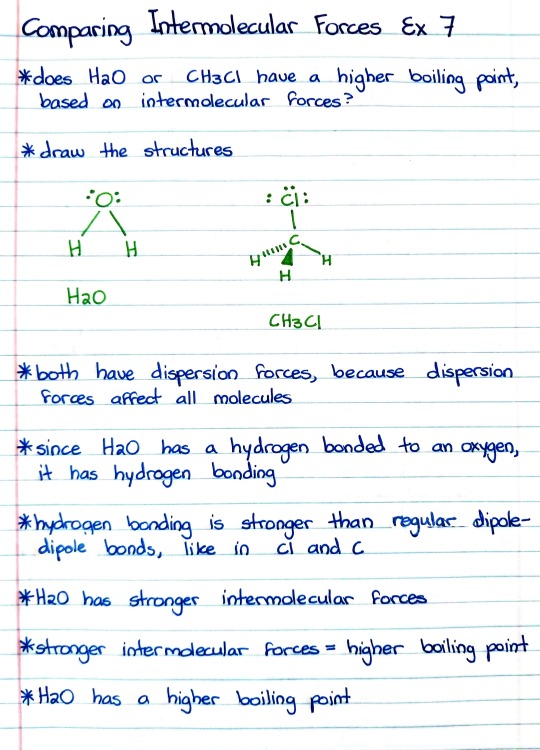 Comparing Intermolecular Forces Ex 7
*does H2O or CH3Cl have a higher boiling point,
based on intermolecular forces?
*draw the structures
:O:
H H
H2O
:Cl:
C
H H
H
CH3Cl
*both have dispersion forces, because dispersion
forces affect all molecules
*since H2O has a hydrogen bonded to an oxygen,
it has hydrogen bonding
*hydrogen bonding is stronger than regular dipole-
dipole bonds, like in Cl and C
*H2O has stronger intermolecular forces
*stronger intermolecular forces = higher boiling point
*H2O has a higher boiling point